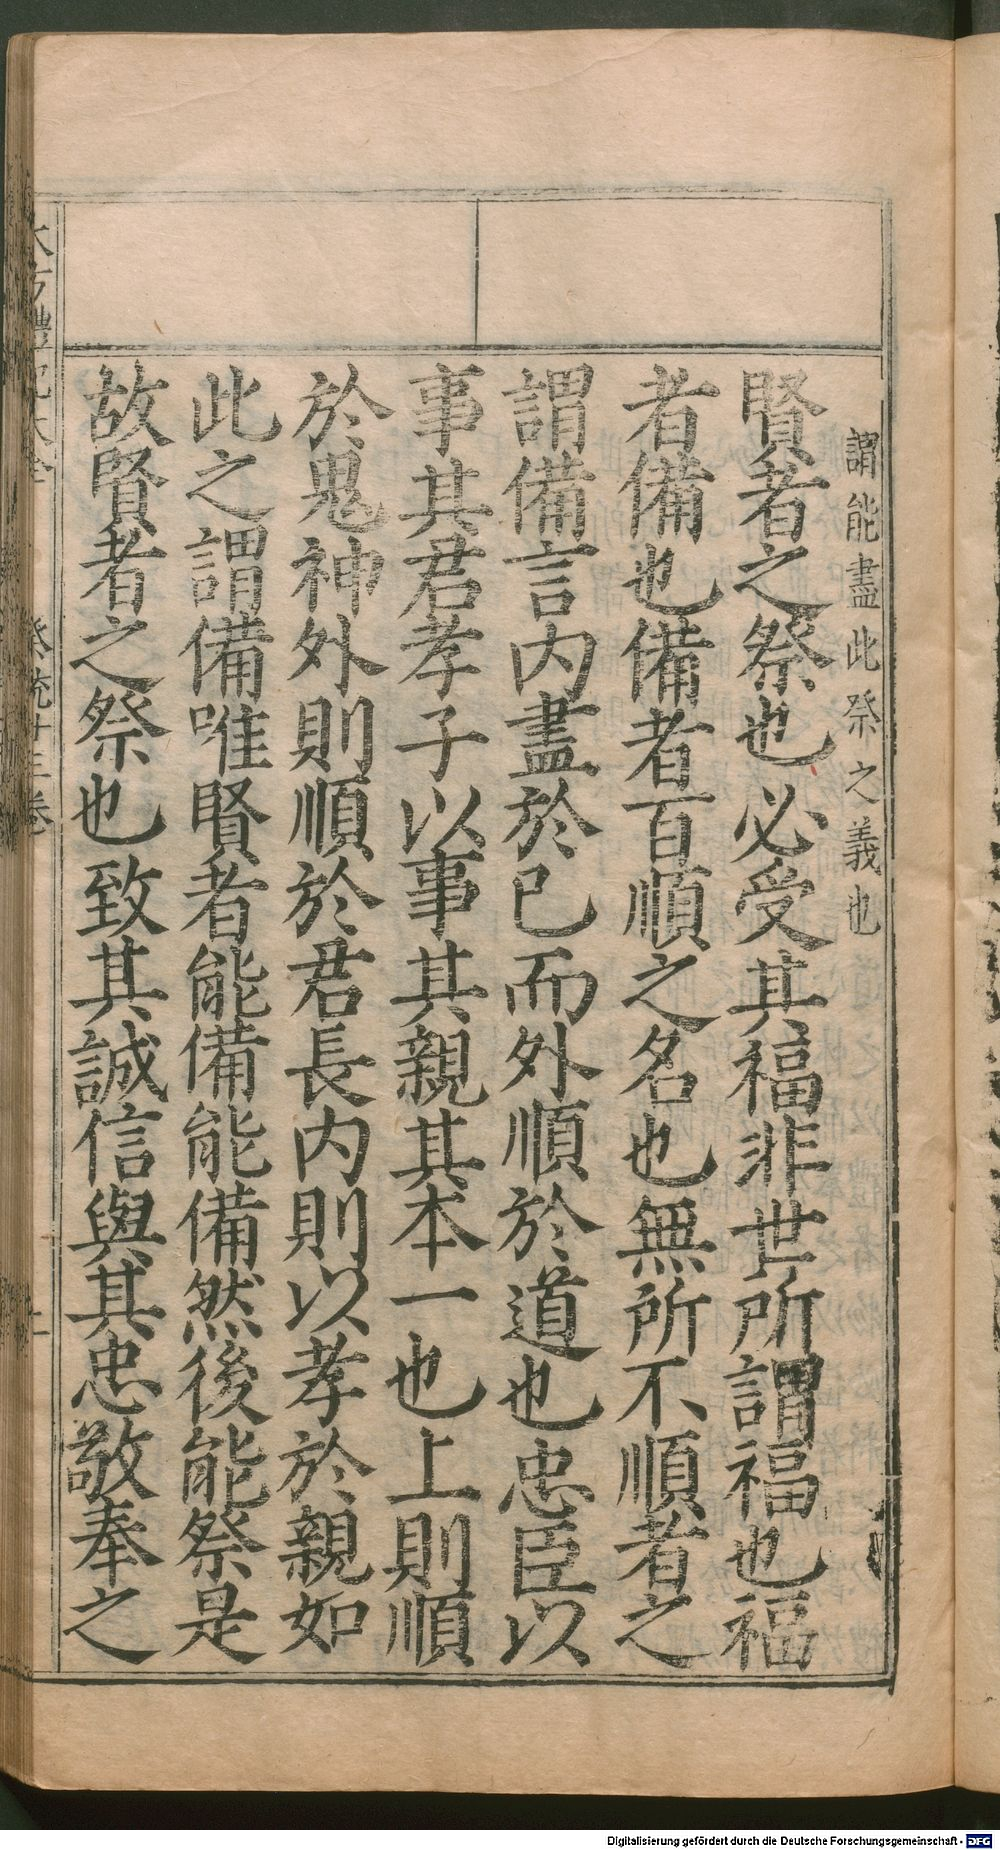 謂能盡此祭之義也
賢者之祭也必受其福非世所謂福也福
者備也備者百順之名也無所不順者之
謂備言内盡於已而外順於道也忠臣以
事其君孝子以事其親其本一也上則順
於鬼神外則順於君長内則以孝於親如
此之謂備唯賢者能備能備然後能祭是
故賢者之祭也致其誠信與其忠敬奉之
禮記大全
祭統十三卷
Digitalisierung gefördert durch die Deutsche Forschungsgemeinschaft - DFG